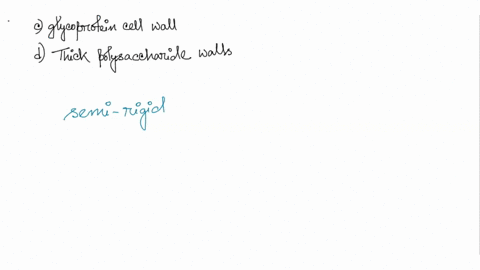 c) glycoprotein cell wall
d) Thick polysaccharide walls
semi-rigid